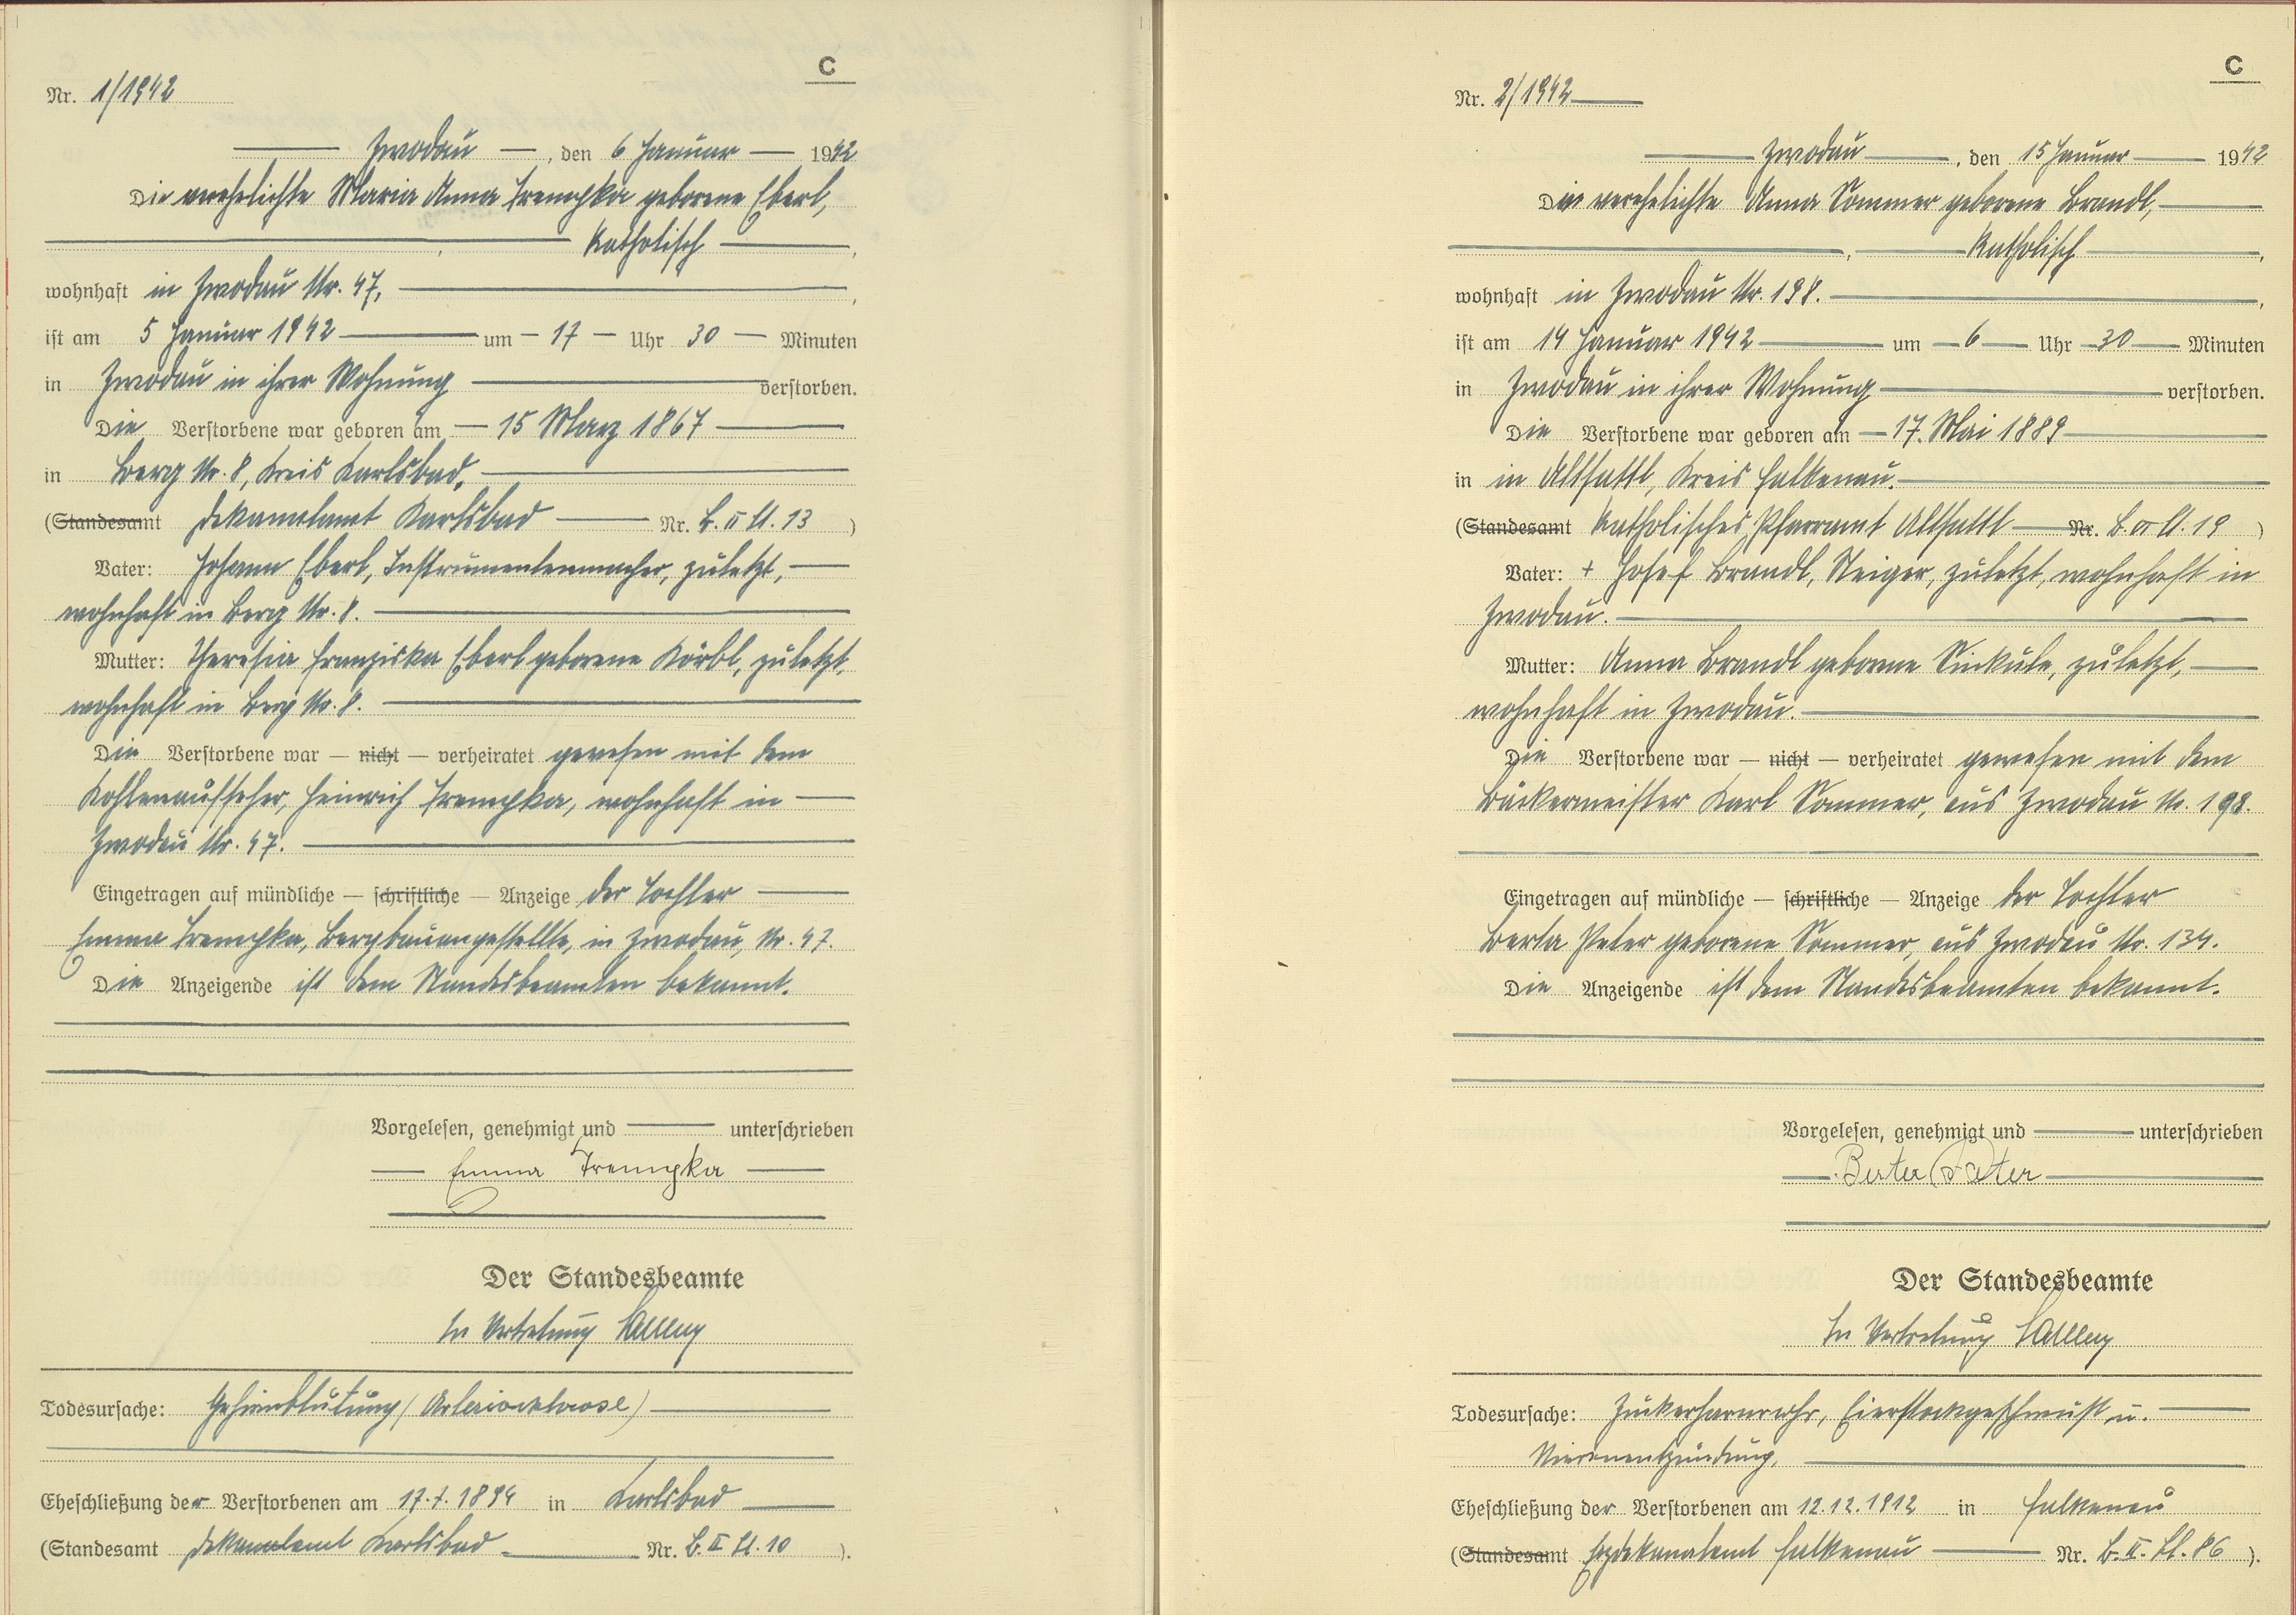 C
Nr. 1/1942
Zwodau, den 6 Januar 1942
Die verehelichte Maria Anna Trempka geborene Eberl,
Katholisch,
wohnhaft in Zwodau Nr. 47,
ist am 5 Januar 1942 um 17 Uhr 30 Minuten
in Zwodau in ihrer Wohnung verstorben.
Die Verstorbene war geboren am 15 März 1867
in Berg Nr. 8, Kreis Karlsbad,
(Standesamt Dekanalamt Karlsbad Nr. B. II Bl. 13)
Vater: Johann Eberl, Instrumentenmacher, zuletzt,
wohnhaft in Berg Nr. 8.
Mutter: Theresia Franziska Eberl geborene Körbl, zuletzt,
wohnhaft in Berg Nr. 8.
Die Verstorbene war — nicht — verheiratet gewesen mit dem
Kohlenaufseher, Heinrich Trempka, wohnhaft in
Zwodau Nr. 47.
Eingetragen auf mündliche — schriftliche — Anzeige der Tochter
Emma Trempka, Bergbauangestellte, in Zwodau, Nr. 47.
Die Anzeigende ist dem Standesbeamten bekannt.
Vorgelesen, genehmigt und unterschrieben
Emma Trempka
Der Standesbeamte
In Vertretung
Todesursache: Gehirnblutung (Arteriosklerose)
Eheschließung der Verstorbenen am 17.7.1894 in Karlsbad
(Standesamt Dekanalamt Karlsbad Nr. B. II Bl. 10).
C
Nr. 2/1942
Zwodau, den 15 Januar 1942
Die verehelichte Anna Sommer geborene Brandl,
Katholisch,
wohnhaft in Zwodau Nr. 198.
ist am 14 Januar 1942 um 6 Uhr 30 Minuten
in Zwodau in ihrer Wohnung verstorben.
Die Verstorbene war geboren am 17. Mai 1889
in in Altsattl, Kreis Falkenau.
(Standesamt Katholisches Pfarramt Altsattl Nr. B. Bl. 19)
Vater: + Josef Brandl, Steiger, zuletzt, wohnhaft in
Zwodau.
Mutter: Anna Brandl geborne Sinkule, zuletzt,
wohnhaft in Zwodau.
Die Verstorbene war — nicht — verheiratet gewesen mit dem
Bäckermeister Karl Sommer, aus Zwodau Nr. 198.
Eingetragen auf mündliche — schriftliche — Anzeige der Tochter
Berta Peter geborene Sommer, aus Zwodau Nr. 134.
Die Anzeigende ist dem Standesbeamten bekannt.
Vorgelesen, genehmigt und unterschrieben
Berta Peter
Der Standesbeamte
In Vertretung
Todesursache: Zuckerharnruhr, Eierstockgeschwulst u.
Nierenentzündung,
Eheschließung der Verstorbenen am 12.12.1912 in Falkenau
(Standesamt Erzdekanalamt Falkenau Nr. B. II. Bl. 86).